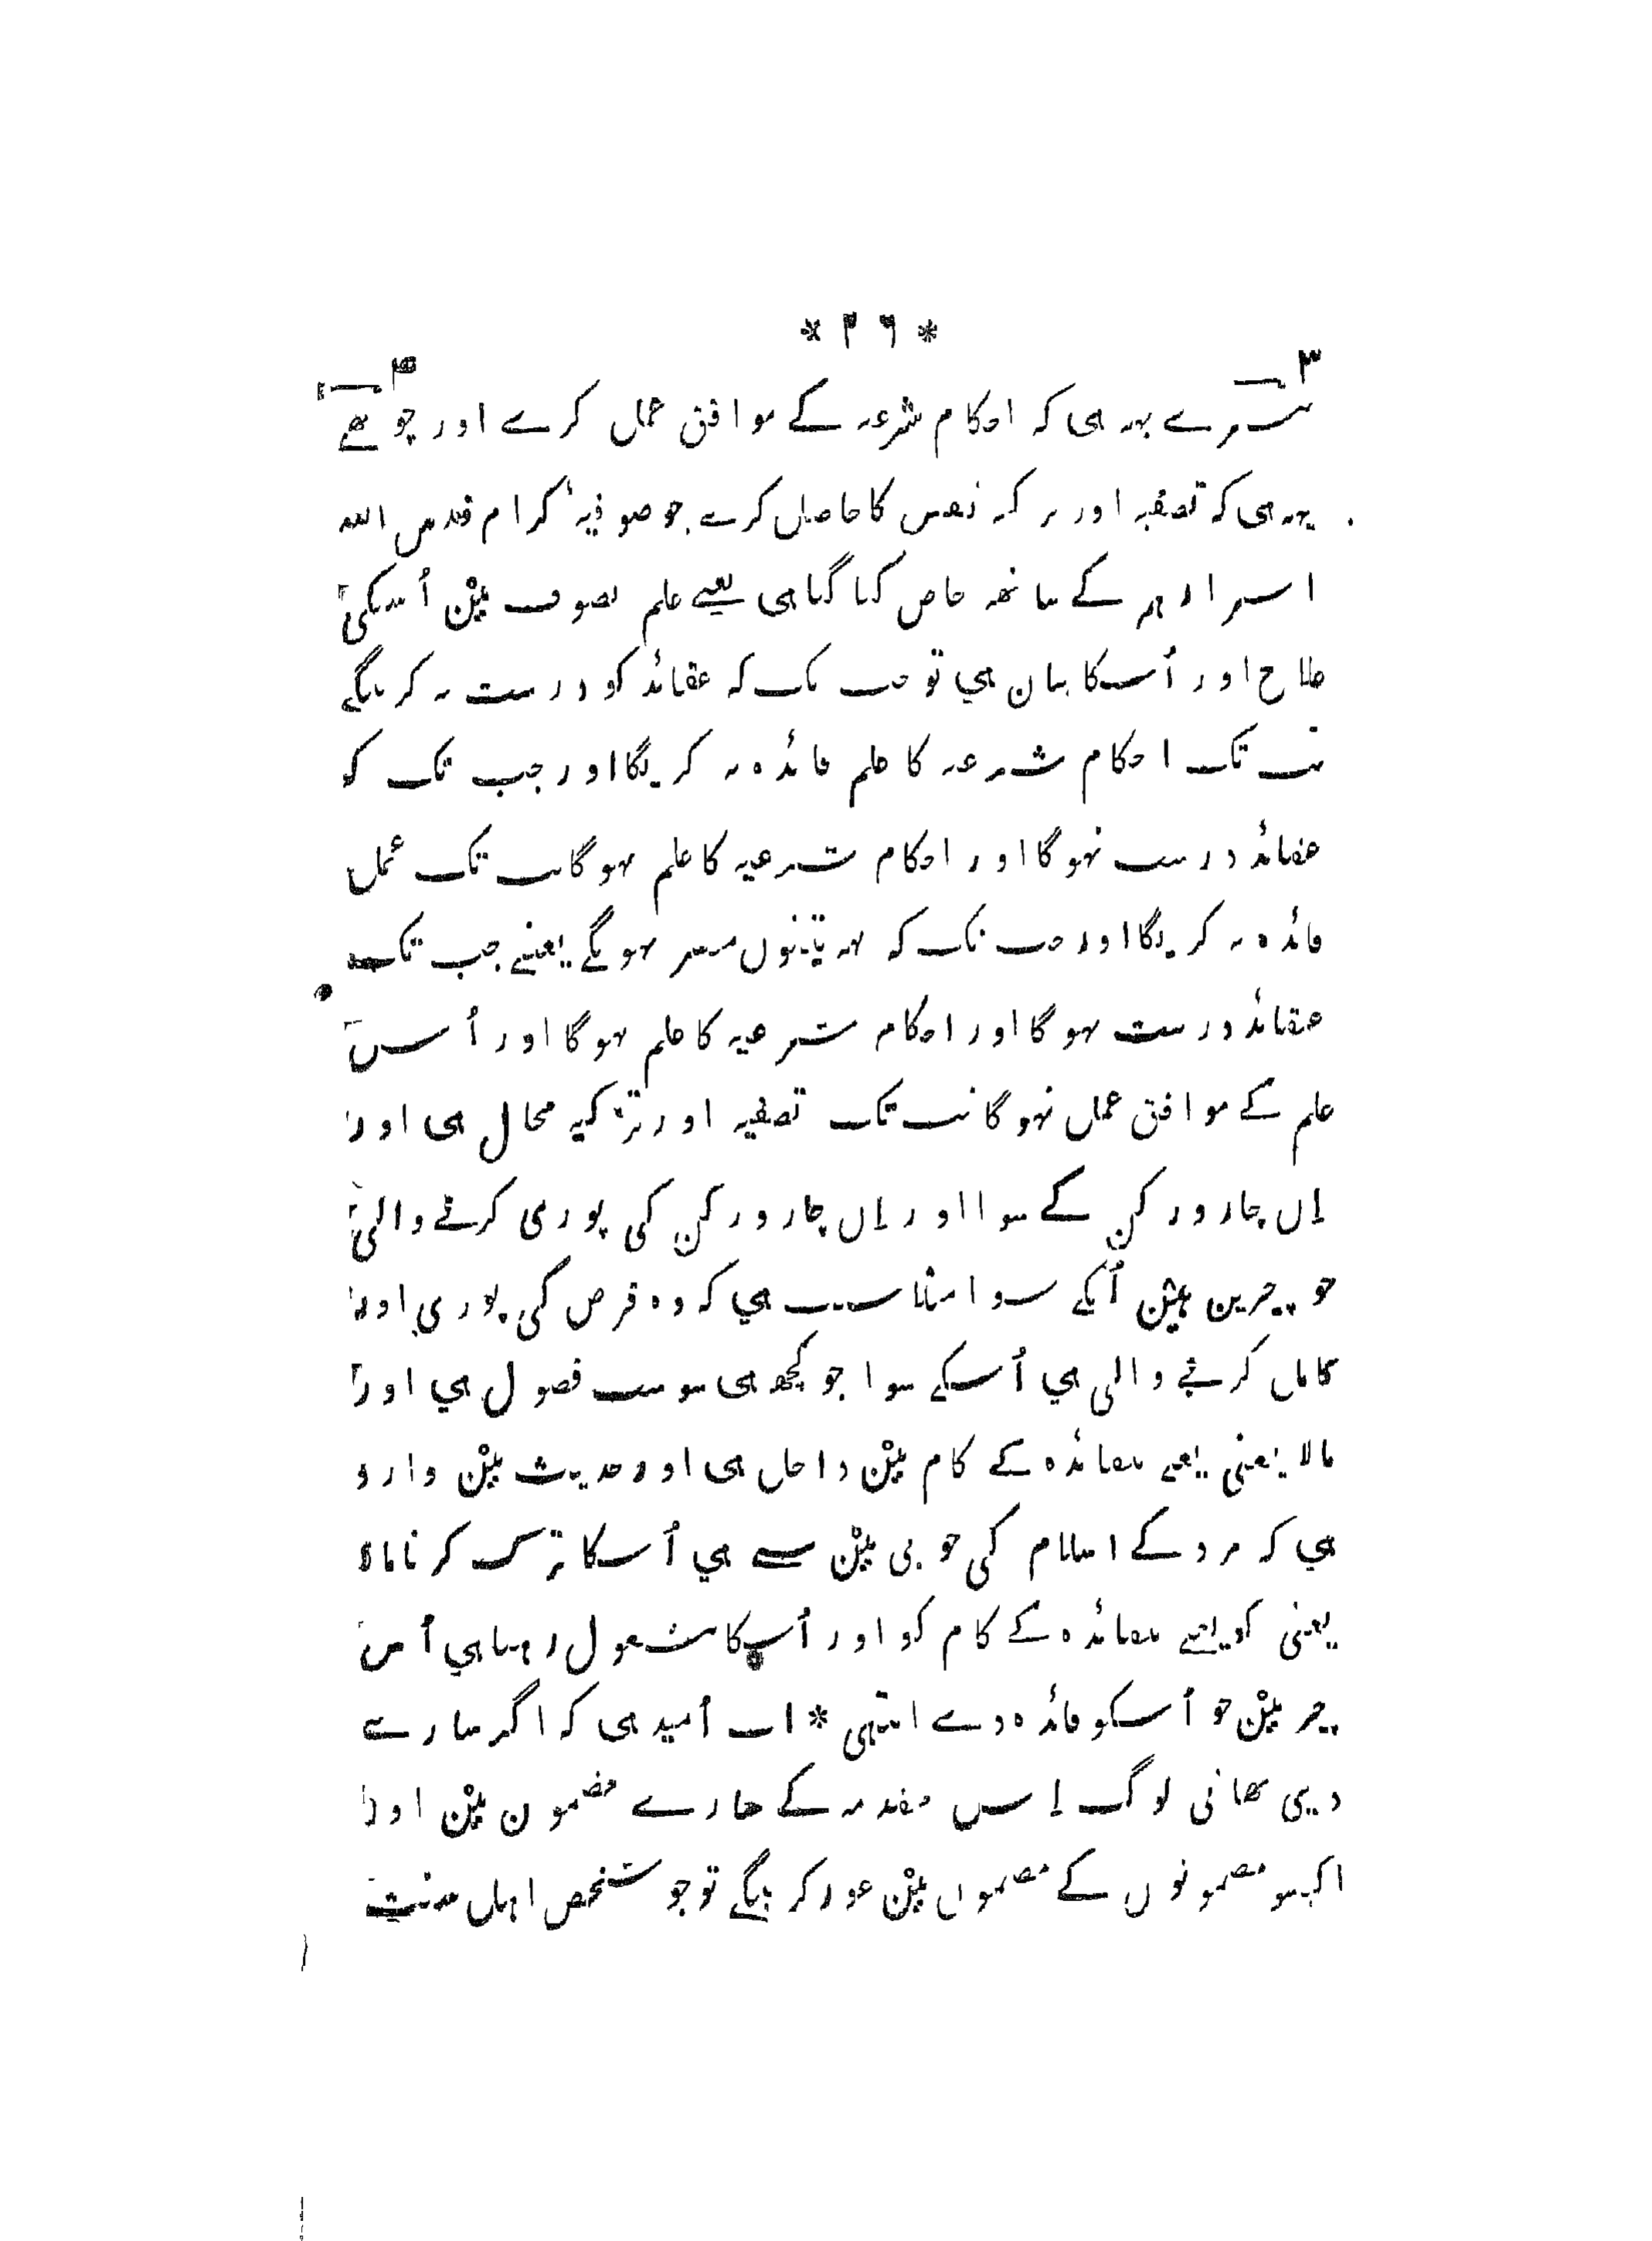 * ۲۶ *
۳ ۴
تیسرے یہہ ہی کہ احکام شرعیہ کے موافق عمل کرے اور چوتھے
یہہ ہی کہ تصفیہ اور تزکیہ نفس کا حاصل کرے جو صوفیہ ٔ کرام قدس اللہ
اسرارہم کے ساتھہ خاص کیا گیا ہی یعنے علم تصوف مین اُسکی
طلاح اور اُسکا بیان ہي تو جب تک کہ عقائد کو درست نہ کرینگے
تب تک احکام شرعیہ کا علم فائدہ نہ کریگا اور جب تک کہ
عقائد درست نہوگا اور احکام شرعیہ کا علم نہوگا تب تک عمل
فائدہ نہ کریگا اور جب تک کہ یہہ تینوں میسر نہوگے یعنے جب تک
عقائد درست نہوگا اور احکام شرعیہ کا علم نہوگا اور اُس
علم کے موافق عمل نہوگا تب تک تصفیہ اور تزکیہ محال ہی اور
اِن چارو رکن کے سوا اور اِن چارو رکن کی پوری کرنے والی
جو چیزین ہین اُنکے سوا مثلا سنت ہي کہ وہ فرض کی پوری اور
کامل کرنے والی ہي اُسکے سوا جو کچھہ ہی سو سب فضول ہي اور
مالا یعنی یعنے بیفائدہ کے کام مین داخل ہی اور حدیث مین وارد
ہي کہ مرد کے اسلام کی خوبی مین سے ہي اُسکا ترک کرنا مالا
یعنی کو یعنے بیفائدہ کے کام کو اور اُسکا مشغول رہنا ہي اُس
چیز مین جو اُسکو فائدہ دے انتہی * اب اُمید ہی کہ اگر سارے
دینی بھائی لوگ اِس مقدمہ کے سارے مضمون مین اور
اکیسو مضمونوں کے مضموں مین غور کرینگے تو جو شخص اہل سنت